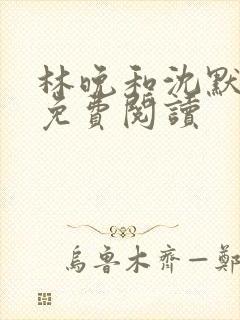 林晚和沈默
免費閱讀
烏魯木齊—鄭